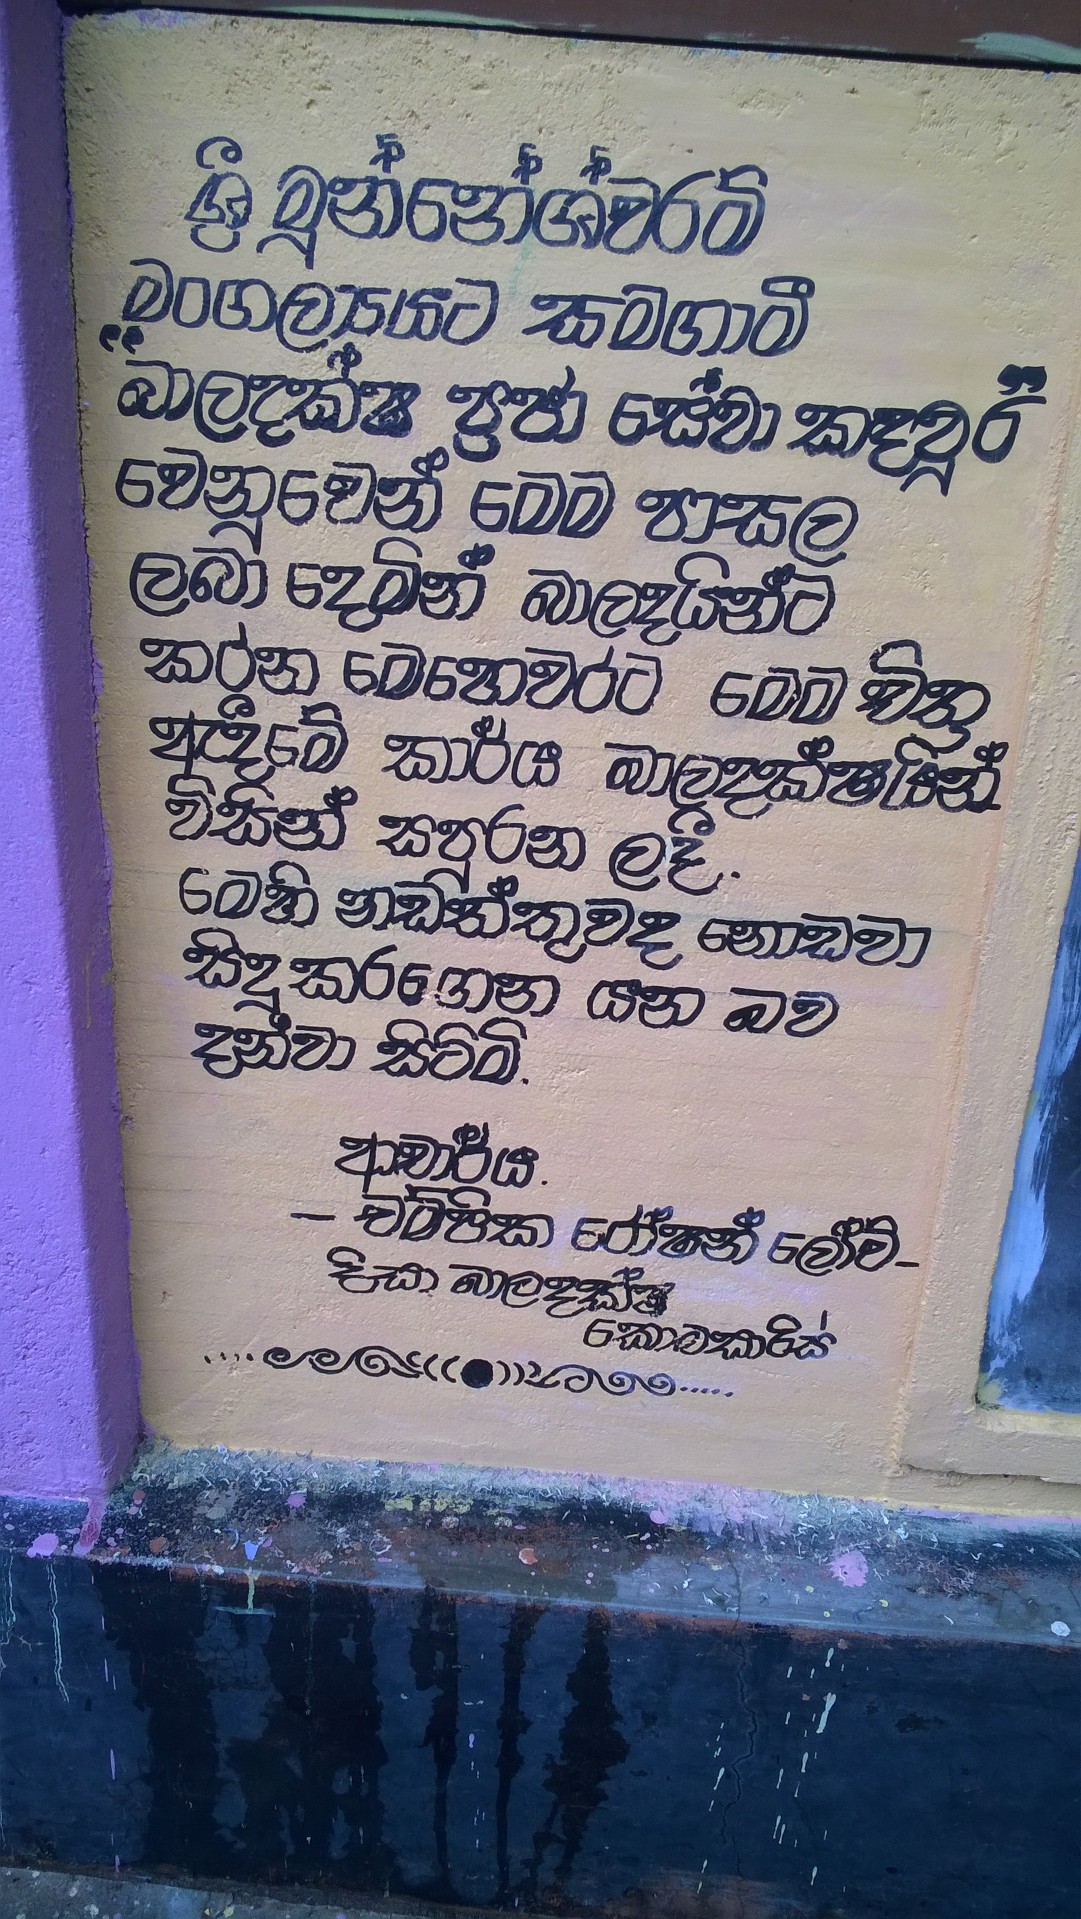 ශ්‍රී මුන්නේශ්වරම්
මංගල්‍යයට සමගාමී
"බාලදක්ෂ ප්‍රජා සේවා කඳවුර"
වෙනුවෙන් මෙම පාසල
ලබා දෙමින් බාලදයින්ට
කරන මෙහෙවරට මෙම චිත්‍ර
ඇඳීමේ කාර්ය බාලදක්ෂයින්
විසින් සපුරන ලදී.
මෙහි නඩත්තුවද නොඩවා
සිදුකරගෙන යන බව
දන්වා සිටිමි.
ආචාර්ය.
- චම්පික රෝෂන්
දිසා බාලදක්ෂ
කොමසාරිස්